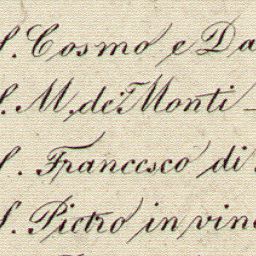 S. Cosmo e Da
S. M. de' Monti
S. Francesco di
S. Pietro in vinc